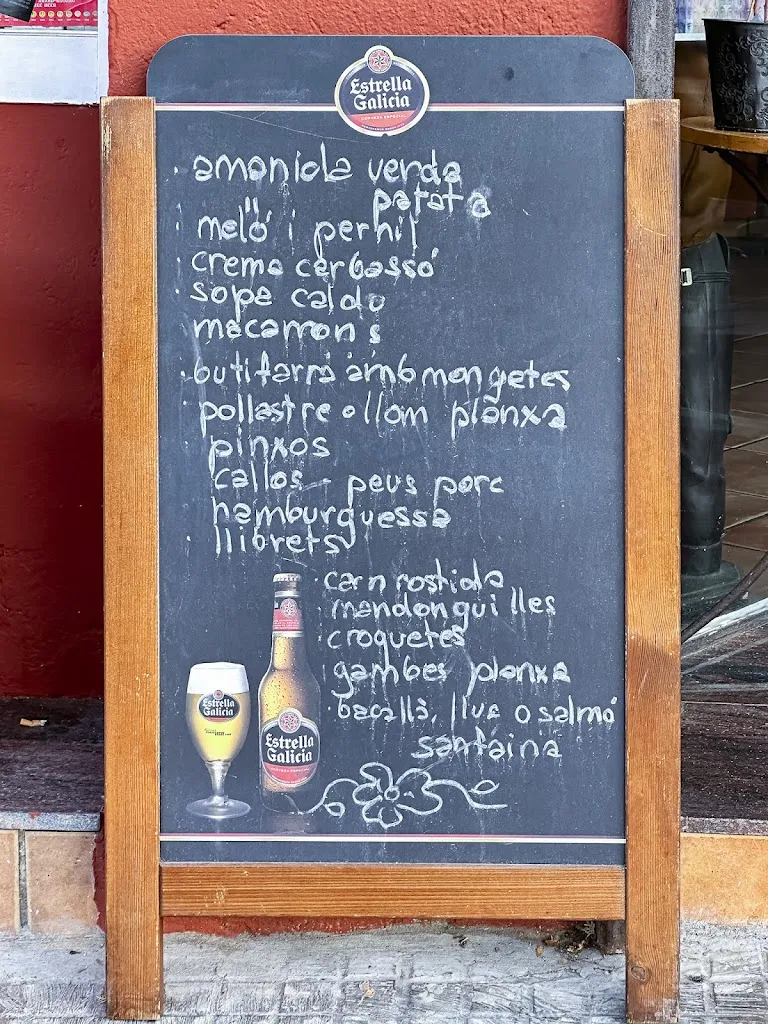 Estrella
Galicia
CERVEZA ESPECIAL
amaniola verda
patata
meló i pernil
crema carbassó
sopa caldo
macarrons
butifarra amb mongetes
pollastre o llom planxa
pinxos
callos - peus porc
hamburguessa
llibrets
carn rostida
mandonguilles
croquetes
gambes planxa
bacallà, llus o salmó
sanfaina
Estrella
Galicia
Estrella
Galicia